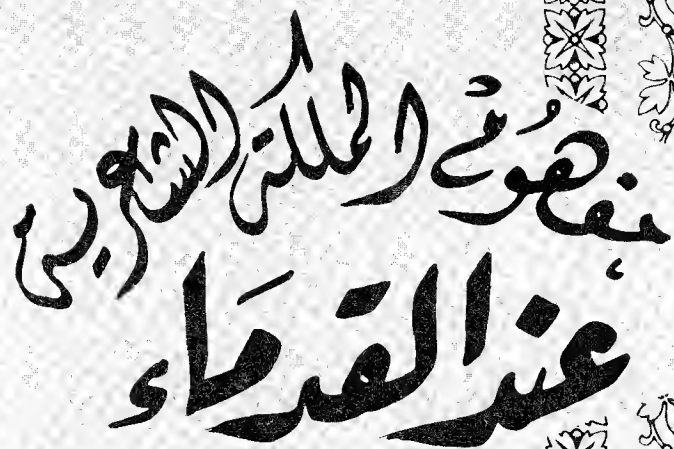 مفهوم الملكة الشعرية
عند القدماء